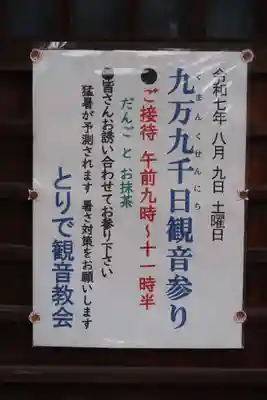 令和七年 八月 九日 土曜日
九万九千日観音参り
くまんくせんにち
●ご接待 午前九時〜十一時半
だんご と お抹茶
●皆さんお誘い合わせてお参り下さい
猛暑が予測されます 暑さ対策をお願いします
とりで観音教会